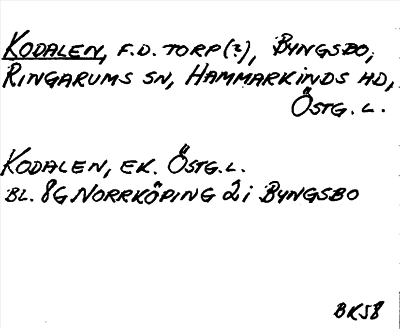 KODALEN, F.D. TORP(?), BYNGSBO,
RINGARUMS SN, HAMMARKINDS HD,
ÖSTG. L.
KODALEN, EK. ÖSTG. L.
BL. 8G NORRKÖPING 2i BYNGSBO
BKS8